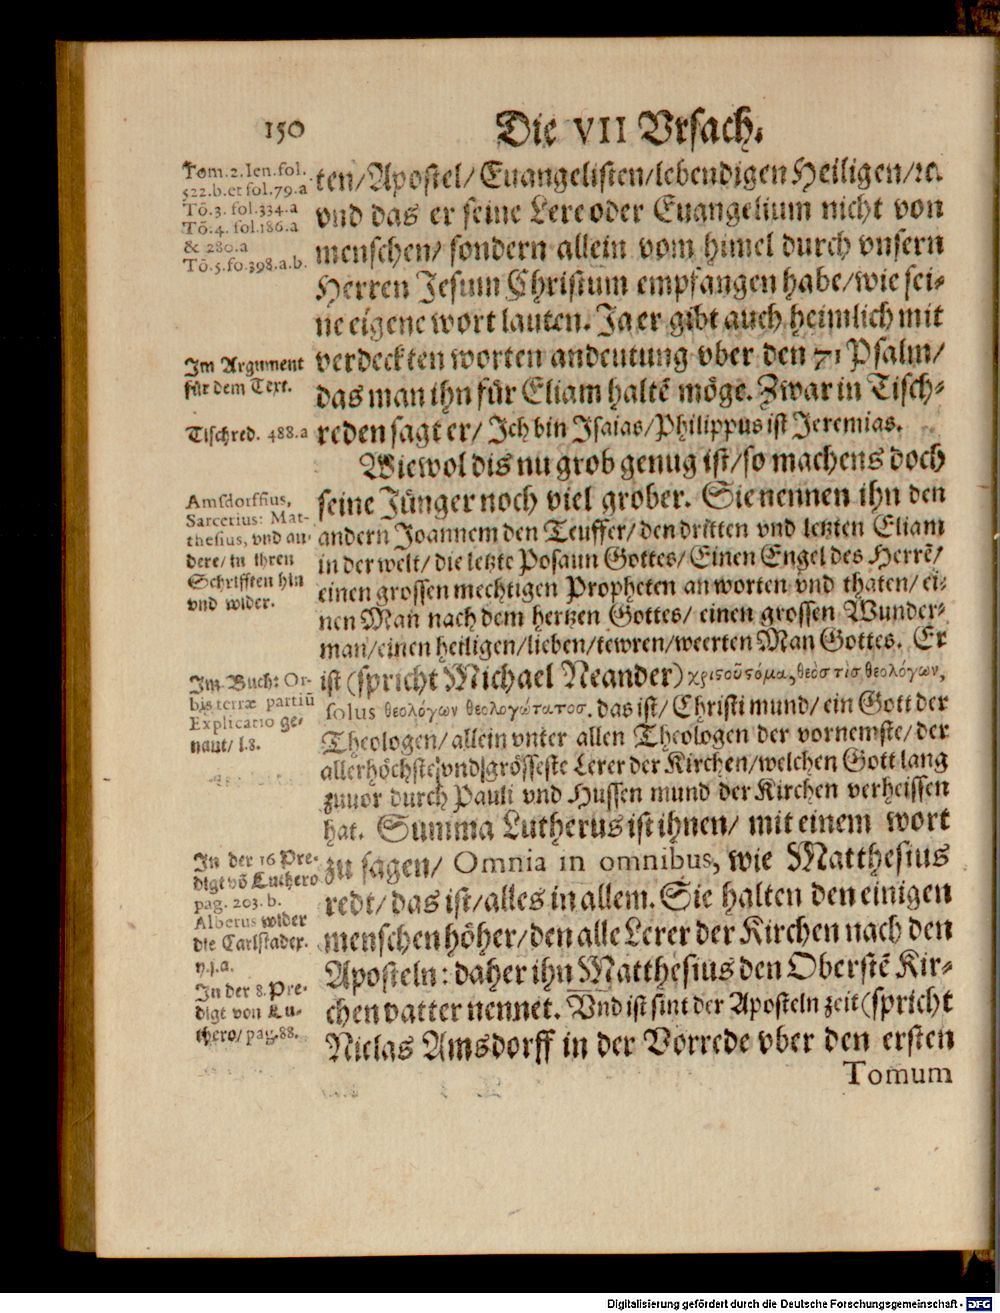 150
Die VII Vrsach.
Tom. 2. Ien. fol.
522. b. et fol. 79. a
Tō. 3. fol. 334. a
Tō. 4. fol. 186. a
& 280. a
Tō. 5. fo. 398. a. b.
ten/ Apostel/ Euangelisten/ lebendigen Heiligen/ ꝛc.
vnd das er seine Lere oder Euangelium nicht von
menschen/ sondern allein vom himel durch vnsern
Herren Jesum Christum empfangen habe/ wie sei-
ne eigene wort lauten. Ja er gibt auch heimlich mit
Im Argument
für dem Text.
verdeckten worten andeutung vber den 71 Psalm/
das man ihn für Eliam haltē möge. Zwar in Tisch-
Tischred. 488. a
reden sagt er/ Ich bin Isaias/ Philippus ist Jeremias.
Wiewol dis nu grob genug ist/ so machens doch
Amsdorffius,
Sarcerius: Mat-
thesius, vnd an-
dere/ in ihren
Schrifften hin
vnd wider.
seine Jünger noch viel grober. Sie nennen ihn den
andern Joannem den Teuffer/ den dritten vnd letzten Eliam
in der welt/ die letzte Posaun Gottes/ Einen Engel des Herrē/
einen grossen mechtigen Propheten an worten vnd thaten/ ei-
nen Man nach dem hertzen Gottes/ einen grossen Wunder-
man/ einen heiligen/ lieben/ tewren/ weerten Man Gottes. Er
Im Buch: Or-
bis terræ partiū
Explicatio ge-
nant/ l. 8.
ist (spricht Michael Neander) χριςοῦςόμα, θεὸς τὶσ θεολόγων,
solus θεολόγων θεολογώτατοσ. das ist/ Christi mund/ ein Gott der
Theologen/ allein vnter allen Theologen der vornemste/ der
allerhöchste vnd grösseste Lerer der Kirchen/ welchen Gott lang
zuuor durch Pauli vnd Hussen mund der Kirchen verheissen
hat. Summa Lutherus ist ihnen/ mit einem wort
In der 16 Pre-
digt vō Luthero
pag. 203. b.
Alberus wider
die Carlstader.
y. j. a.
In der 8. Pre-
digt von Lu-
thero/ pag. 88.
zu sagen/ Omnia in omnibus, wie Matthesius
redt/ das ist/ alles in allem. Sie halten den einigen
menschen höher/ den alle Lerer der Kirchen nach den
Aposteln: daher ihn Matthesius den Oberstē Kir-
chen vatter nennet. Vnd ist sint der Aposteln zeit (spricht
Niclas Amsdorff in der Vorrede vber den ersten
Tomum
Digitalisierung gefördert durch die Deutsche Forschungsgemeinschaft - DFG